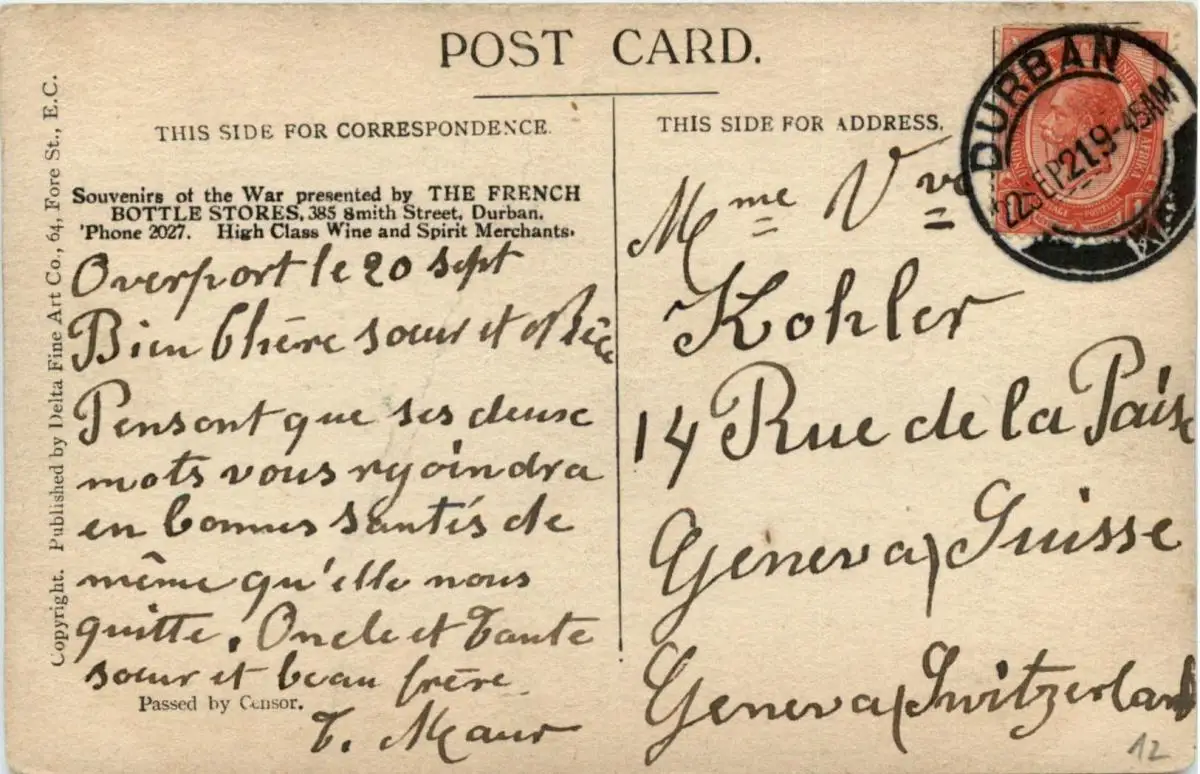 POST CARD.
THIS SIDE FOR CORRESPONDENCE.
Souvenirs of the War presented by THE FRENCH
BOTTLE STORES, 385 Smith Street, Durban.
'Phone 2027. High Class Wine and Spirit Merchants.
Overport le 20 sept
Bien Chère sœur et
Pensont que ses deux
mots vous rejoindra
en bonnes santés de
même qu'elle nous
quitte. Oncle et Tante
sœur et beau frère
Passed by Censor.
T. Maur
Copyright. Published by Delta Fine Art Co., 64, Fore St., E.C.
THIS SIDE FOR ADDRESS.
Mme Vve
Kohler
14 Rue de la Paix
Geneva, Suisse
Geneva, Switzerland
DURBAN
22 SEP 21 9-45 AM
12